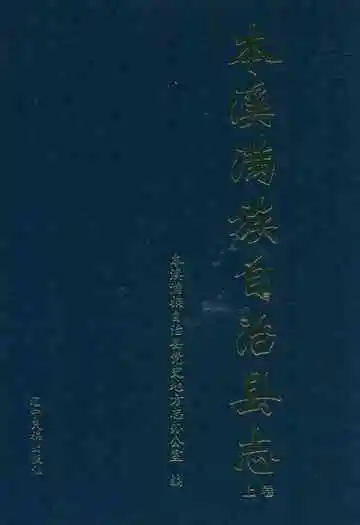 本溪满族自治县志
上卷
本溪满族自治县党史地方志办公室 编
辽宁民族出版社